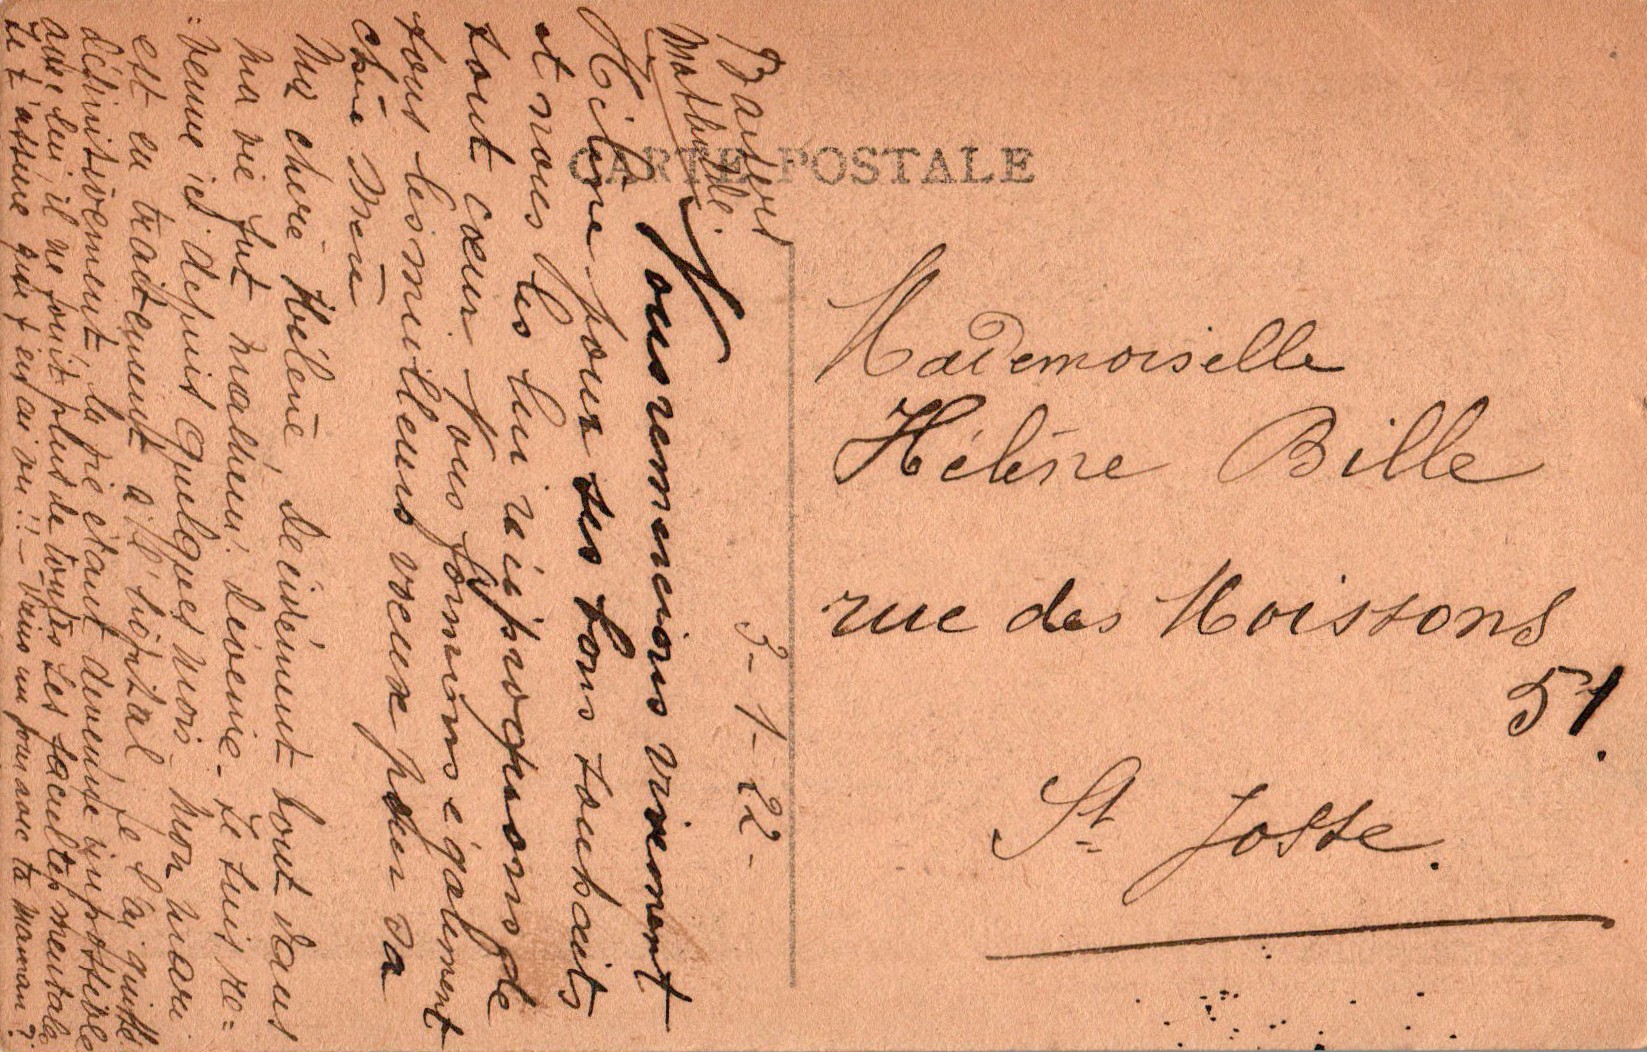 CARTE POSTALE
3-1-22-
Nous remercions vivement
Hélène pour ses bons souhaits
et nous les lui réciproquons de
tout cœur. Nous formons également
tous les meilleurs voeux pour sa
chère Mère
Ma chère Hélène, Décidément tout dans
ma vie fut malheur. Devenue. Je suis re=
=venue ici depuis quelques mois. Mon mari
est en traitement à l'hôpital je l'ai quitté
définitivement, la vie étant devenue impossible
avec lui, il ne jouit plus de toutes ses facultés mentales
Je t'assure que j'en ai vu!! - Viens un jour avec ta maman?
Mademoiselle
Hélène Bille
rue des Moissons
51.
St Josse.